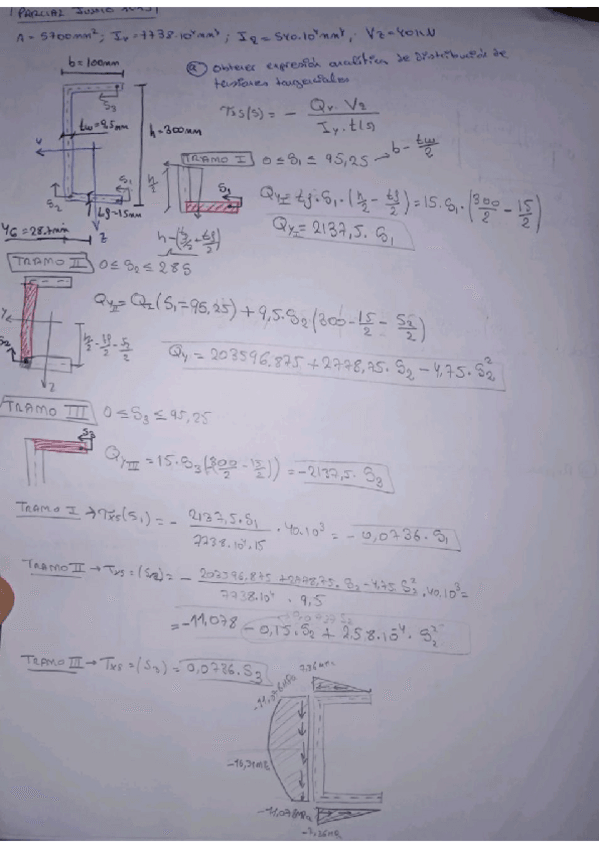 PARCIAL JUNIO
A=5700mm²; Iy=7738.10⁴mm⁴; Iz=540.10⁴mm⁴, Vz=40kN
b=100mm
a) obtener expresión analítica de distribución de
tensiones tangenciales
S3
tw=9,5mm
h=300mm
τxs(s) = - Qy. Vz / Iy. t(s)
V
TRAMO I 0≤S1≤95,25 → b - tw/2
S1
S2
tf=15mm
h/2
S1
QyI= tf. S1. (h/2 - tf/2)=15.S1.(300/2 - 15/2)
QyI= 2137,5. S1
yG=28.7mm
z
h-(tf/2+tf/2)
TRAMO II 0≤S2≤285
QyII=QI(S1=95,25)+9,5.S2(300-15/2 - S2/2)
y
h/2-tf/2-S2/2
S2
z
Qy=203596.875+2778,75.S2-4,75.S2²
TRAMO III 0≤S3≤95,25
S3
QyIII=15.S3(-(300/2-15/2))=-2137,5. S3
TRAMO I → τxs(S1)= - 2137,5.S1 / 7738.10⁴.15 . 40.10³ = -0,0736.S1
TRAMO II → τxs=(S2)= - 203596.875+2778,75. S2-4,75 S2² / 7738.10⁴ . 9,5 .40.10³=
=-11,078 -0,15.S2 + 2,58.10⁻⁴. S2²
TRAMO III → τxs=(S3)= 0,0736.S3
-11,078MPa
-11,078MPa